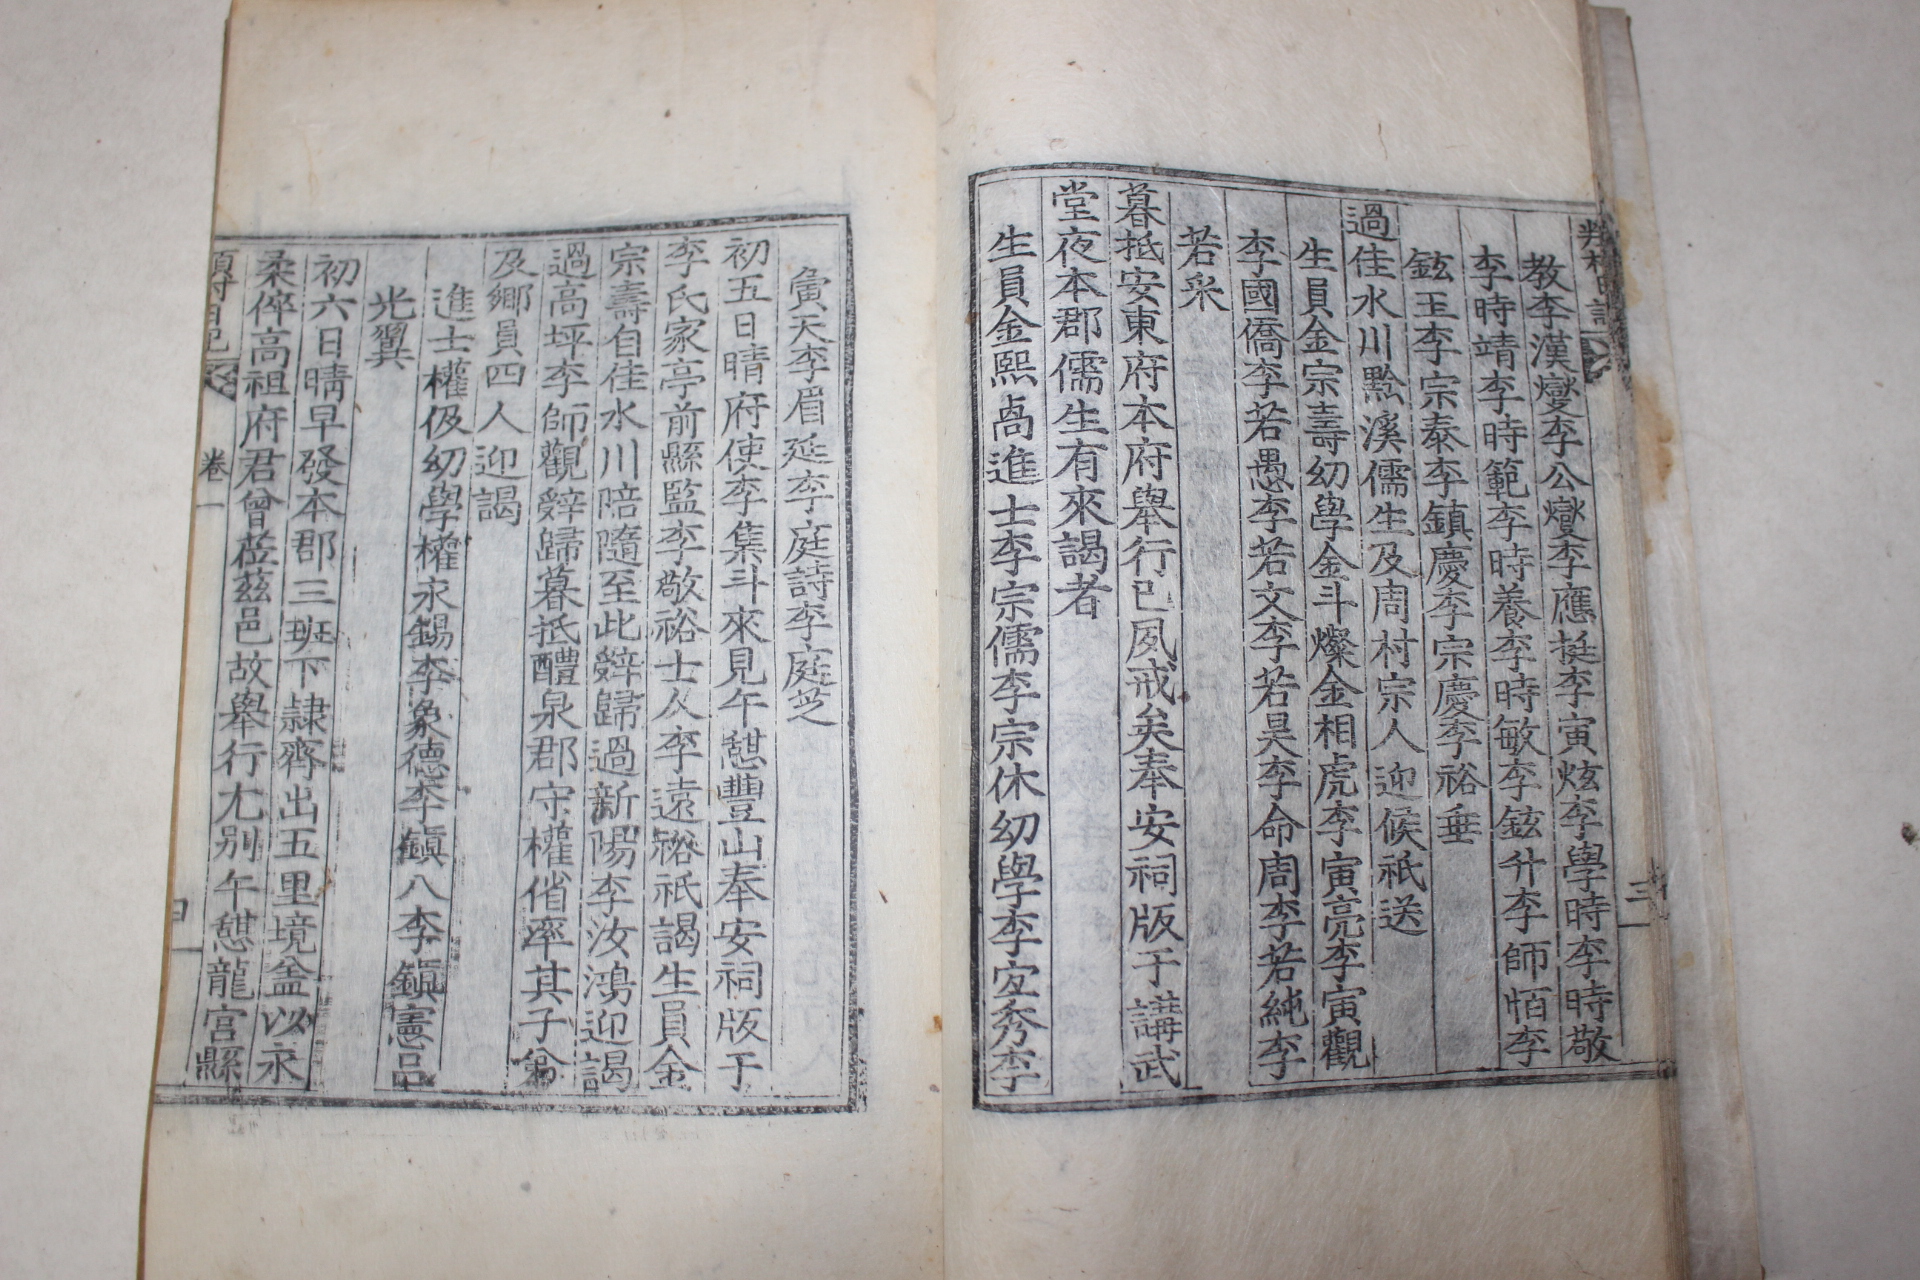 教李漢燮李公燮李應挺李寅炫李學時李時敬
李時靖李時範李時養李時敏李鉉升李師怕李
鉉玉李宗泰李鎮慶李宗慶李裕垂
過佳水川黔溪儒生及周村宗人迎候祇送
生員金宗壽幼學金斗燦金相虎李寅亮李寅觀
李國僑李若愚李若文李若昊李命周李若純李
若采
暮抵安東府本府舉行已夙戒矣奉安祠版于講武
堂夜本郡儒生有來謁者
生員金熙卨進士李宗儒李宗休幼學李宜秀李
寅天李眉延李庭詩李庭芝
初五日晴府使李集斗來見午憩豐山奉安祠版于
李氏家亭前縣監李敬裕士人李遠裕祇謁生員金
宗壽自佳水川陪隨至此辭歸過新陽李汝鴻迎謁
過高坪李師觀辭歸暮抵醴泉郡守權偗率其子
及鄉員四人迎謁
進士權伋幼學權永錫李象德李鎮八李鎮憲呂
光翼
初六日晴早發本郡三班下隷齊出五里境盆以永
柔倅高祖府君曾莅茲邑故舉行尤別午憩龍宮縣
卷一
三